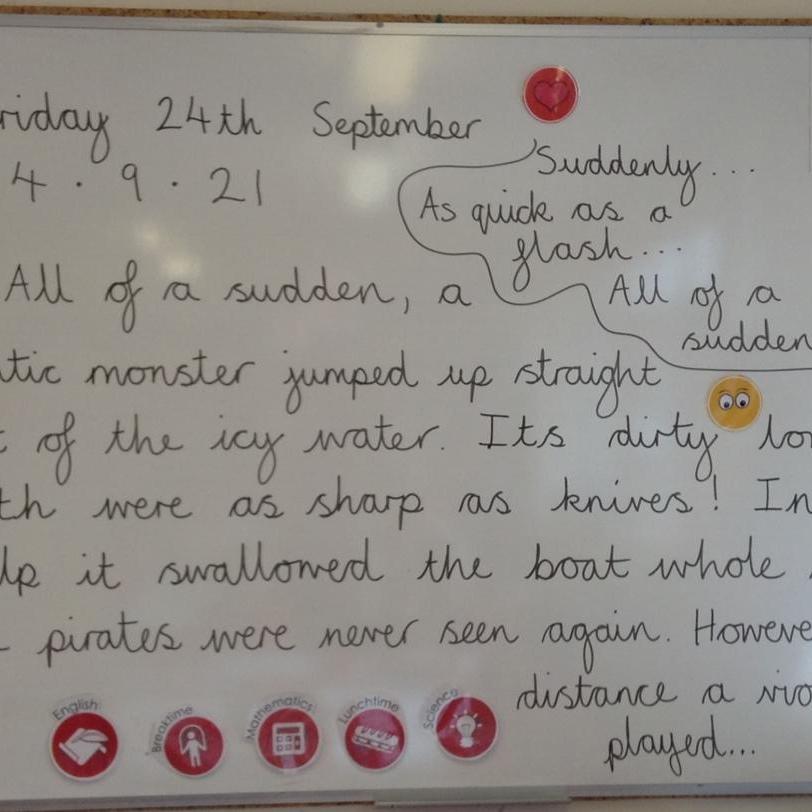 riday 24th September
4 . 9 . 21
Suddenly...
As quick as a
flash...
All of a
sudden
All of a sudden, a
tic monster jumped up straight
of the icy water. Its dirty lo
th were as sharp as knives! In
lp it swallowed the boat whole
pirates were never seen again. Howeve
distance a vio
played...
English
Breaktime
Mathematics
Lunchtime
Science